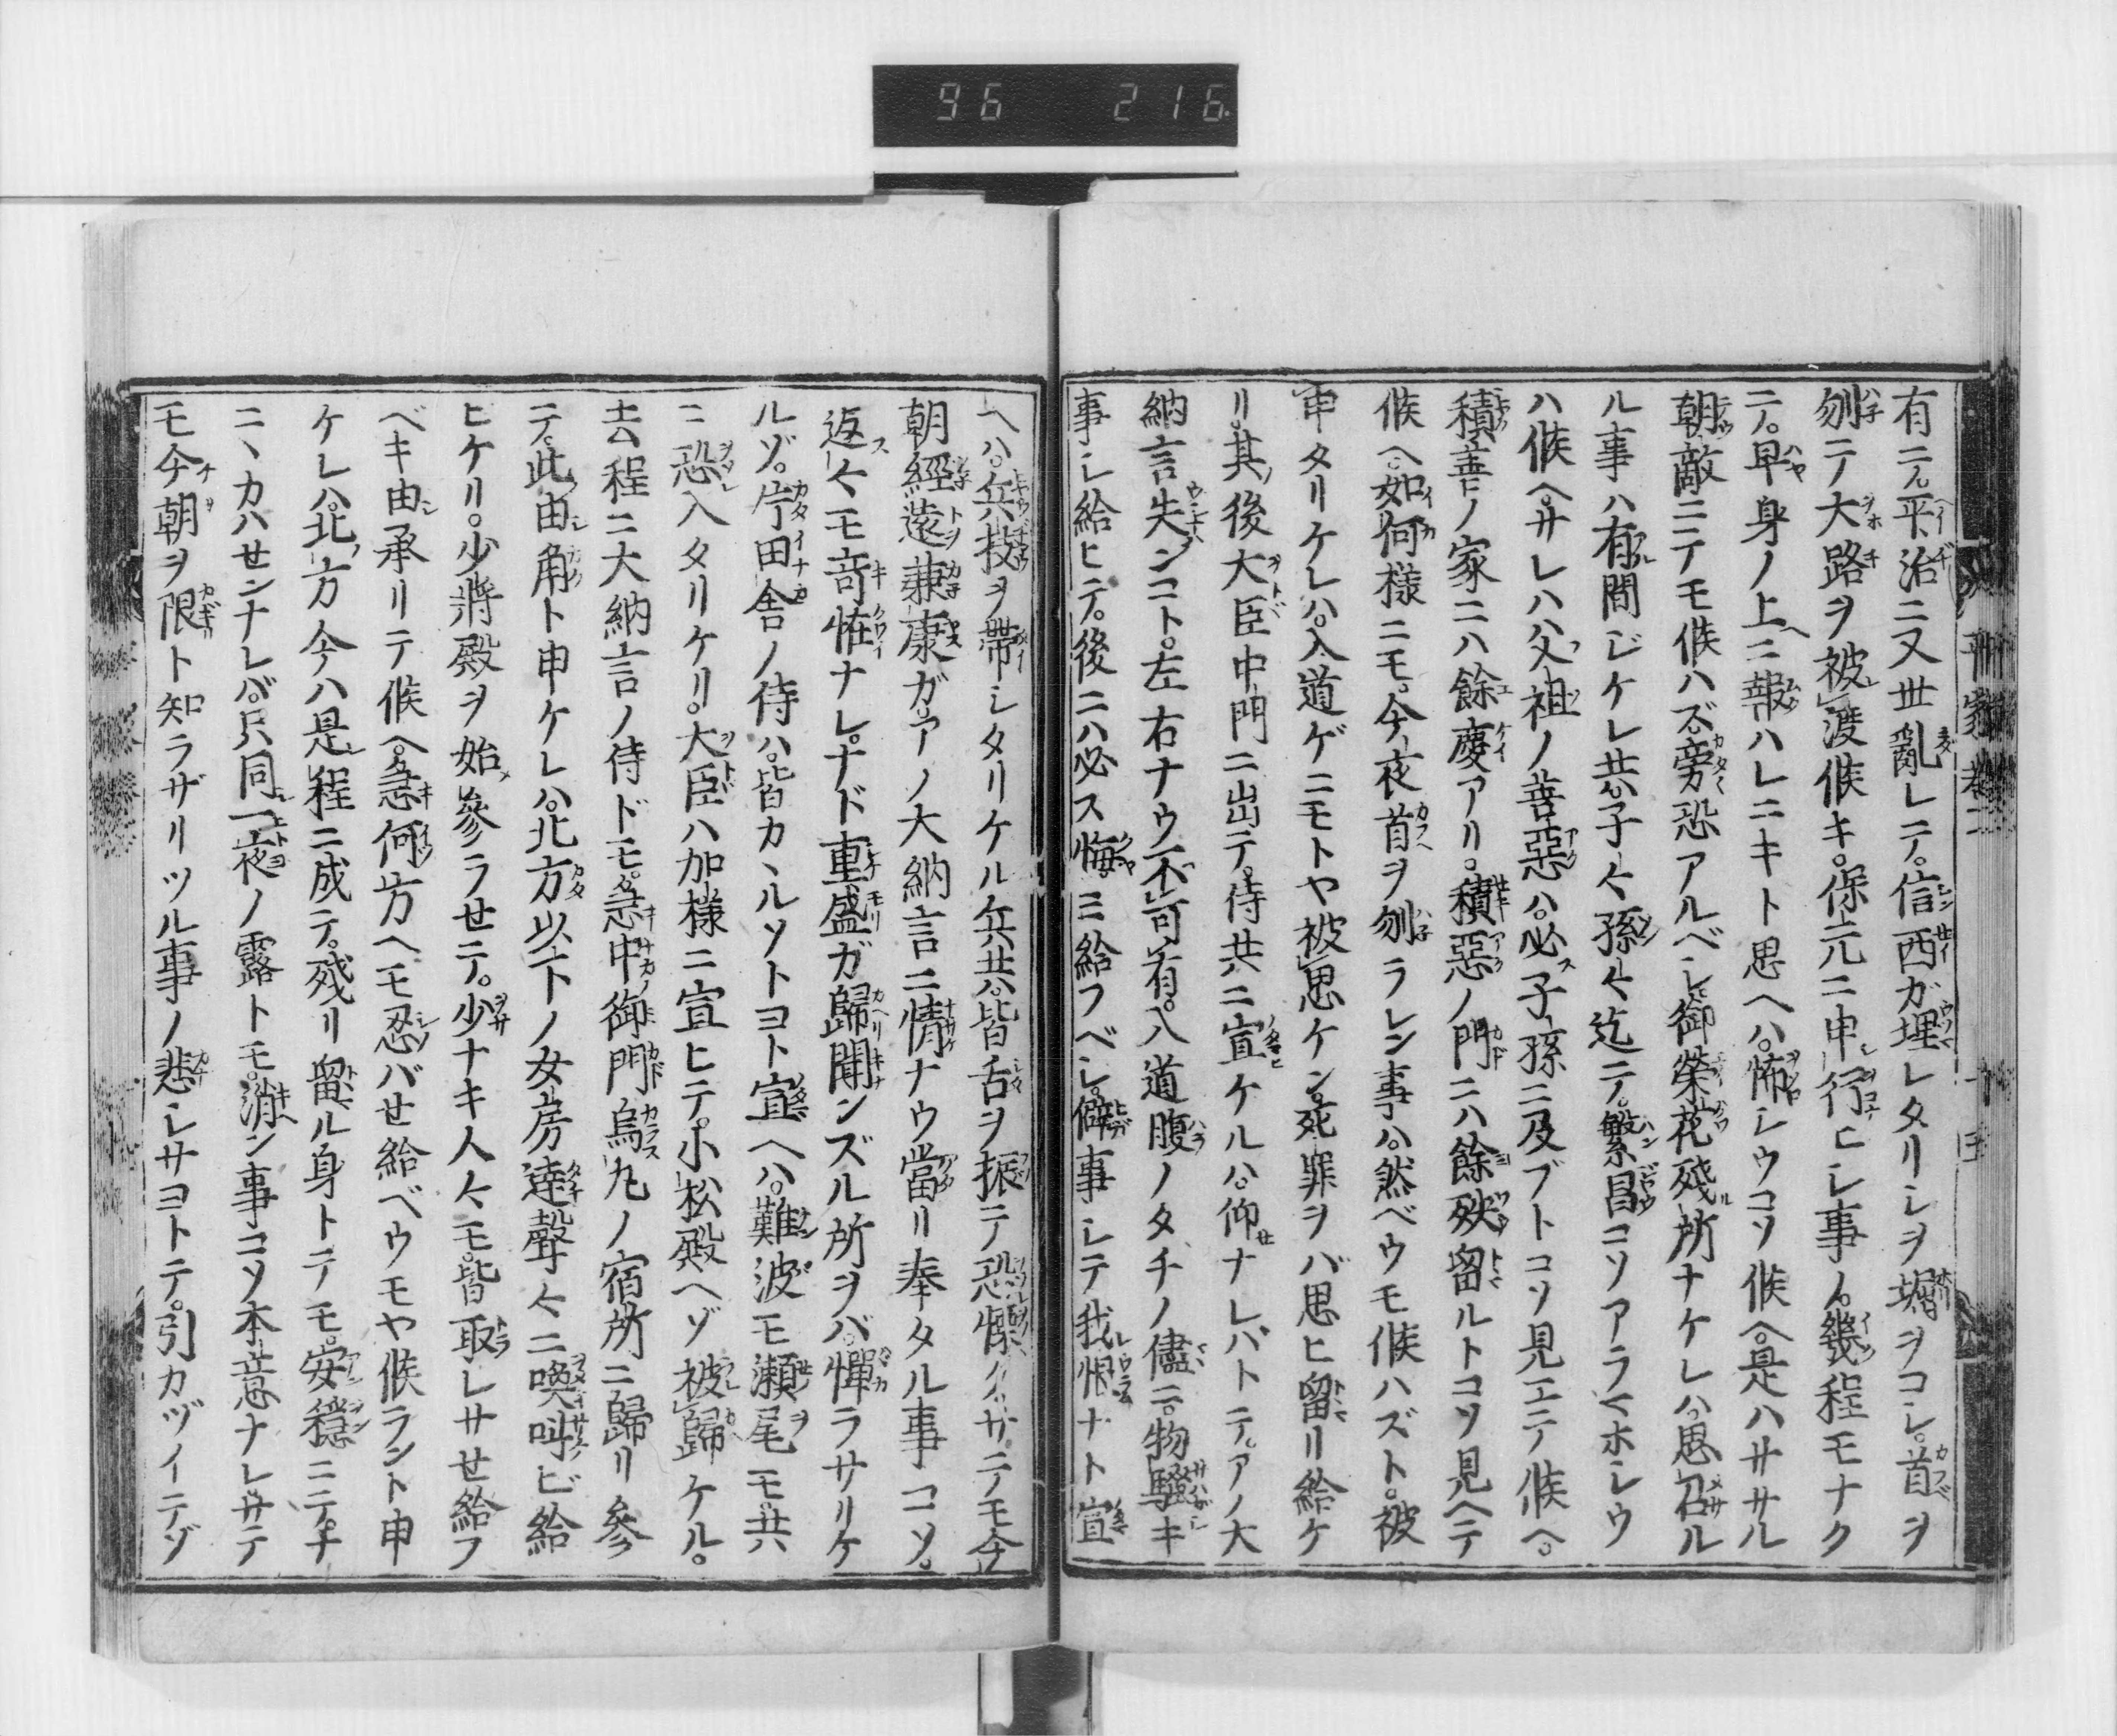 96 216
有ニ。平治ニ又世亂レテ。信西ガ埋レタリシヲ堀ヲコシ。首ヲ
刎テ大路ヲ被渡候キ。保元ニ申行ヒシ事ノ。幾程モナク
テ。早身ノ上ニ報ハレニキト思ヘハ。怖シウコソ候ヘ。是ハサル
朝敵ニテモ候ハズ。旁恐アルベシ。御榮花殘所ナケレハ。思召ル
ル事ハ有間ジケレ共。子々孫々迄テ。繁昌コソアラマホシウ
ハ候ヘ。サレハ父祖ノ善惡ハ。必子孫ニ及ブトコソ見エテ候ヘ。
積善ノ家ニハ餘慶アリ。積惡ノ門ニハ餘殃留ルトコソ見ヘテ
候ヘ。如何樣ニモ。今夜首ヲ刎ラレン事ハ。然ベウモ候ハズト。被
申タリケレハ。入道ゲニモトヤ被思ケン。死罪ヲバ思ヒ留リ給ケ
リ。其後大臣中門ニ出テ。侍共ニ宣ケルハ。仰ナレバトテ。アノ大
納言失ンコト。左右ナウ不可有。入道腹ノタチノ儘ニ。物騒キ
事シ給ヒテ。後ニハ必ス悔ミ給フベシ。僻事シテ我恨ナト宣
ヘハ。兵杖ヲ帶シタリケル兵共。皆舌ヲ振テ恐慄ク。サテモ今
朝經遠兼康ガ。アノ大納言ニ情ナウ當リ奉タル事コソ。
返々モ竒恠ナレ。ナド重盛ガ歸聞ンズル所ヲバ。憚ラサリケ
ルゾ。片田舎ノ侍ハ。皆カヽルソトヨト宣ヘハ。難波モ瀬尾モ。共
ニ恐入タリケリ。大臣ハ加樣ニ宣ヒテ。小松殿ヘゾ被歸ケル。
去程ニ大納言ノ侍ドモ。急中御門烏丸ノ宿所ニ歸リ參
テ。此由角ト申ケレハ。北方以下ノ女房達。聲々ニ喚叫ビ給
ヒケリ。少將殿ヲ始參ラせテ。少ナキ人々モ。皆取レサせ給フ
ベキ由承リテ候ヘ。急何方ヘモ忍バせ給ベウモヤ候ラント申
ケレハ。北方今ハ是程ニ成テ。殘リ留ル身トテモ。安穏ニテ。ナ
ニヽカハせンナレバ。只同一夜ノ露トモ。消ン事コソ本意ナレ。サテ
モ今朝ヲ限ト知ラザリツル事ノ悲シサヨトテ。引カヅイテゾ